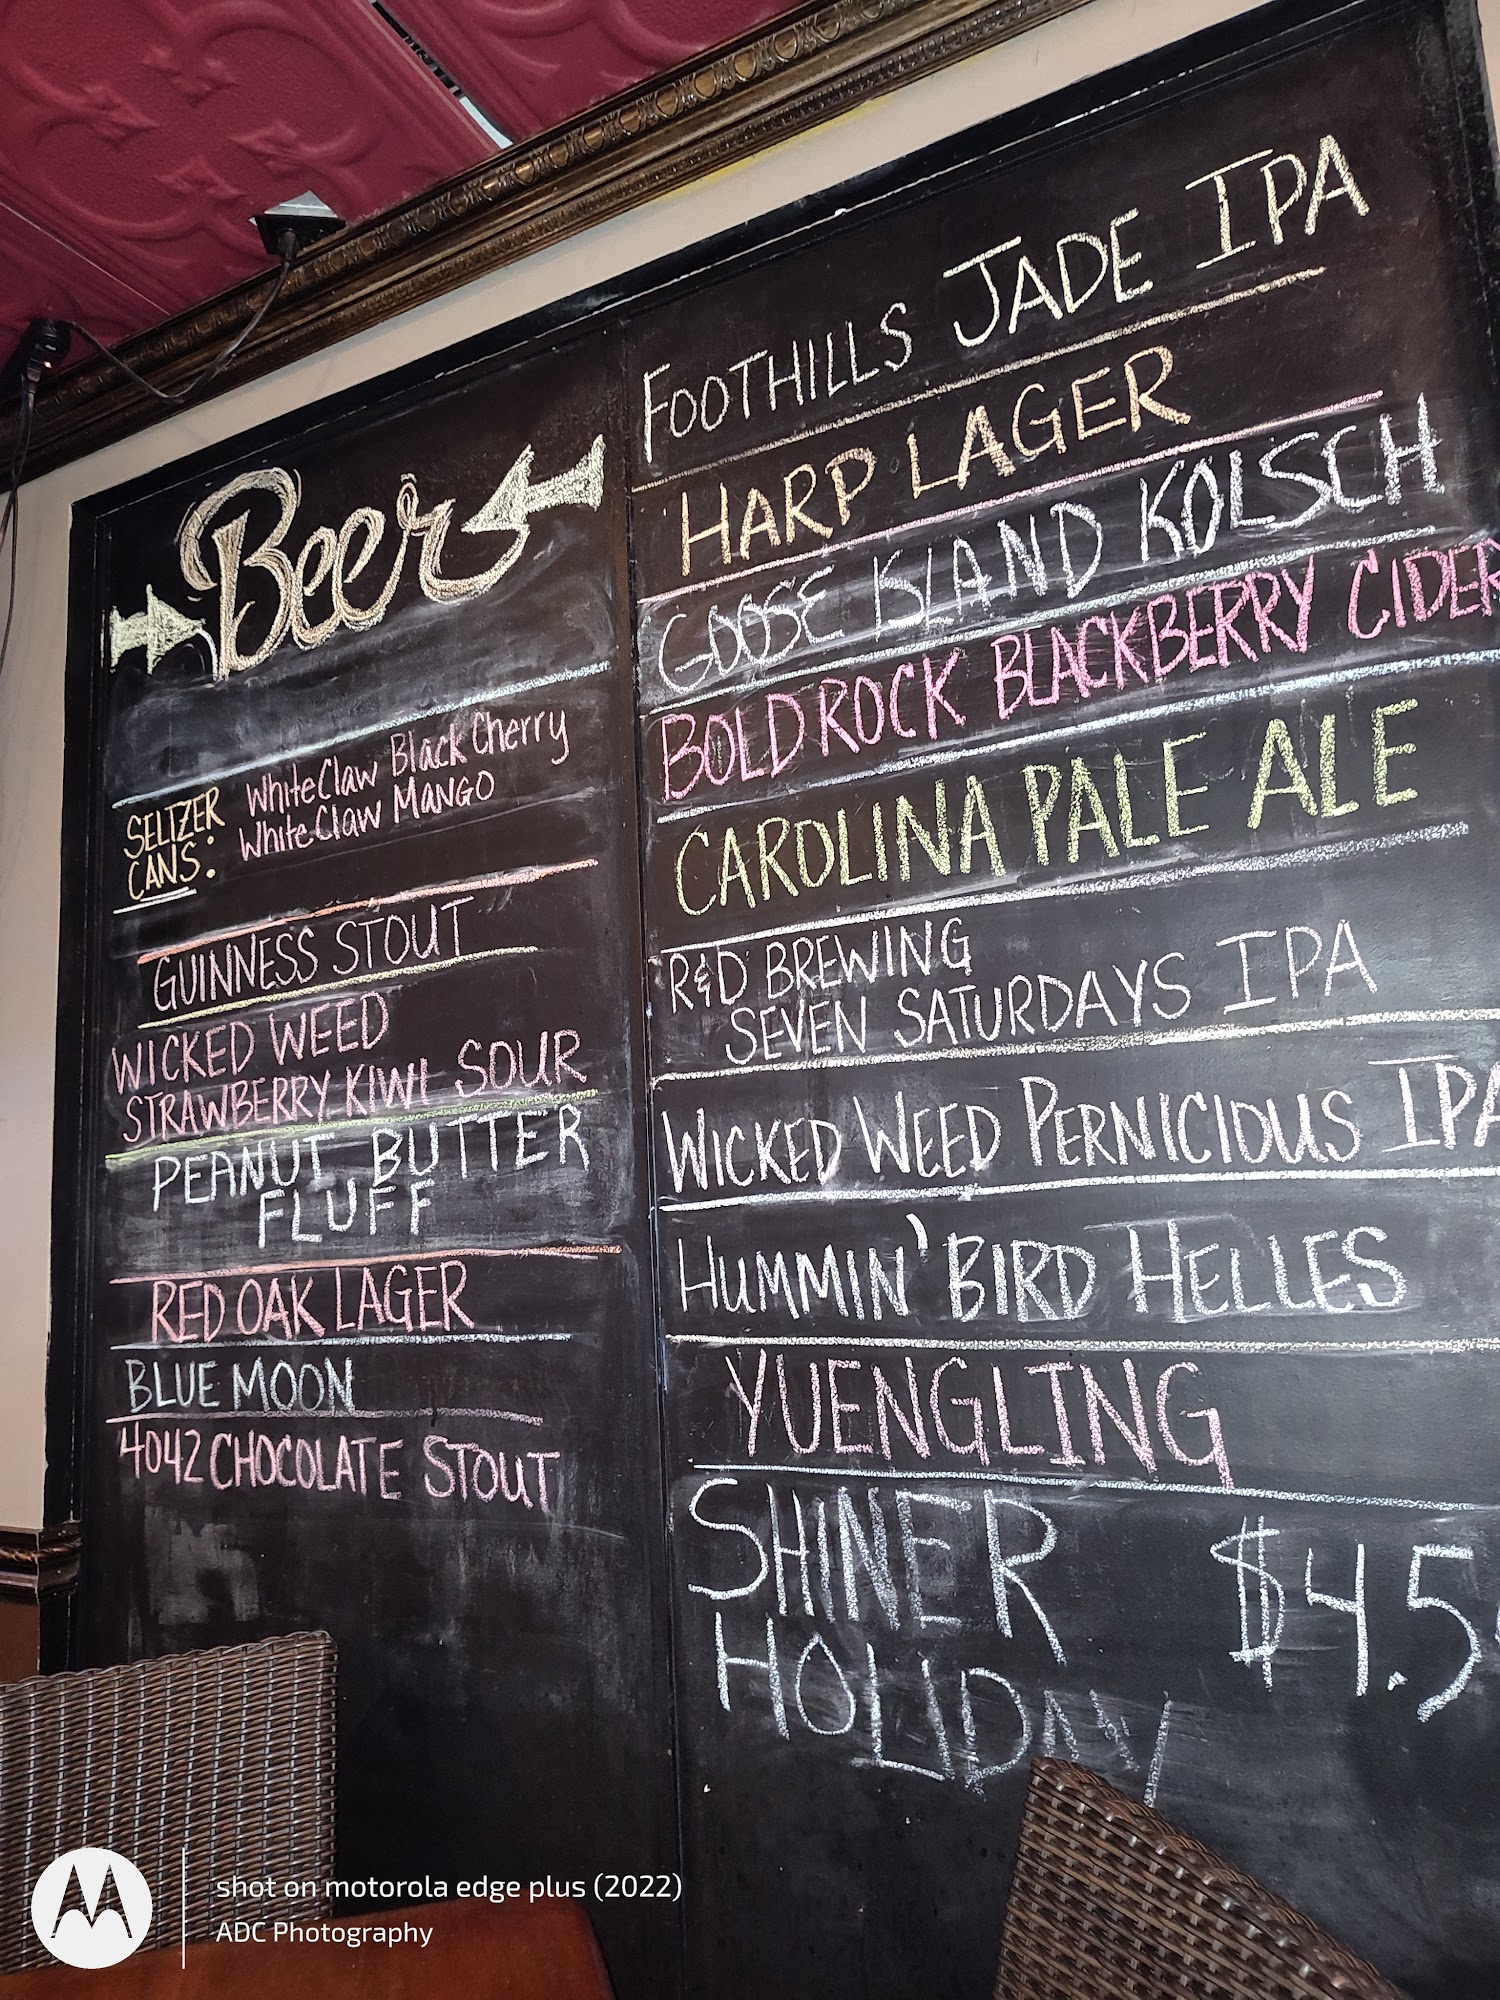 Beer
SELTZER
CANS:
WhiteClaw Black Cherry
WhiteClaw MANGO
GUINNESS STOUT
WICKED WEED
STRAWBERRY KIWI SOUR
PEANUT BUTTER
FLUFF
RED OAK LAGER
BLUE MOON
4042 CHOCOLATE STOUT
FOOTHILLS JADE IPA
HARP LAGER
GOOSE ISLAND KOLSCH
BOLD ROCK BLACKBERRY CIDER
CAROLINA PALE ALE
R&D BREWING
SEVEN SATURDAYS IPA
WICKED WEED PERNICIOUS IPA
HUMMIN' BIRD HELLES
YUENGLING
SHINER
HOLIDAY
$4.5
shot on motorola edge plus (2022)
ADC Photography